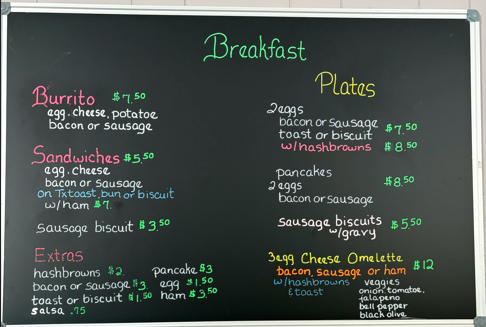 Breakfast
Burrito $7.50
egg, cheese, potatoe
bacon or sausage
Sandwiches $5.50
egg, cheese
bacon or sausage
on Tx toast, bun or biscuit
w/ ham $7.
sausage biscuit $3.50
Extras
hashbrowns $2.
bacon or sausage $3.
toast or biscuit $1.50
salsa .75
pancake $3
egg $1.50
ham $3.50
Plates
2 eggs
bacon or sausage
toast or biscuit $7.50
w/ hashbrowns $8.50
pancakes
2 eggs $8.50
bacon or sausage
sausage biscuits $5.50
w/gravy
3 egg Cheese Omelette
bacon, sausage or ham $12
w/ hashbrowns
& toast
veggies
onion, tomatoe,
jalapeno
bell pepper
black olive